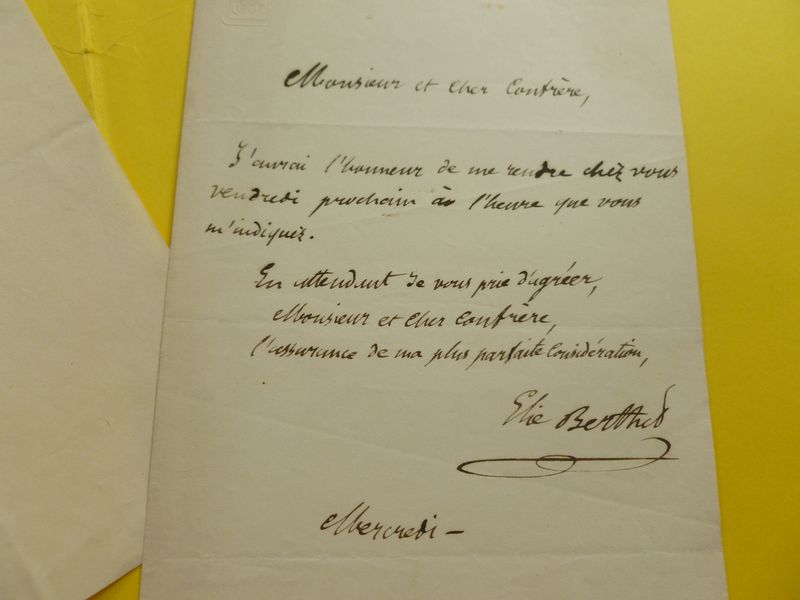 Monsieur et cher Confrère,
J'aurai l'honneur de me rendre chez vous
vendredi prochain à l'heure que vous
m'indiquez.
En attendant je vous prie d'agréer,
Monsieur et cher Confrère,
l'assurance de ma plus parfaite considération,
Elie Berthet
Mercredi —